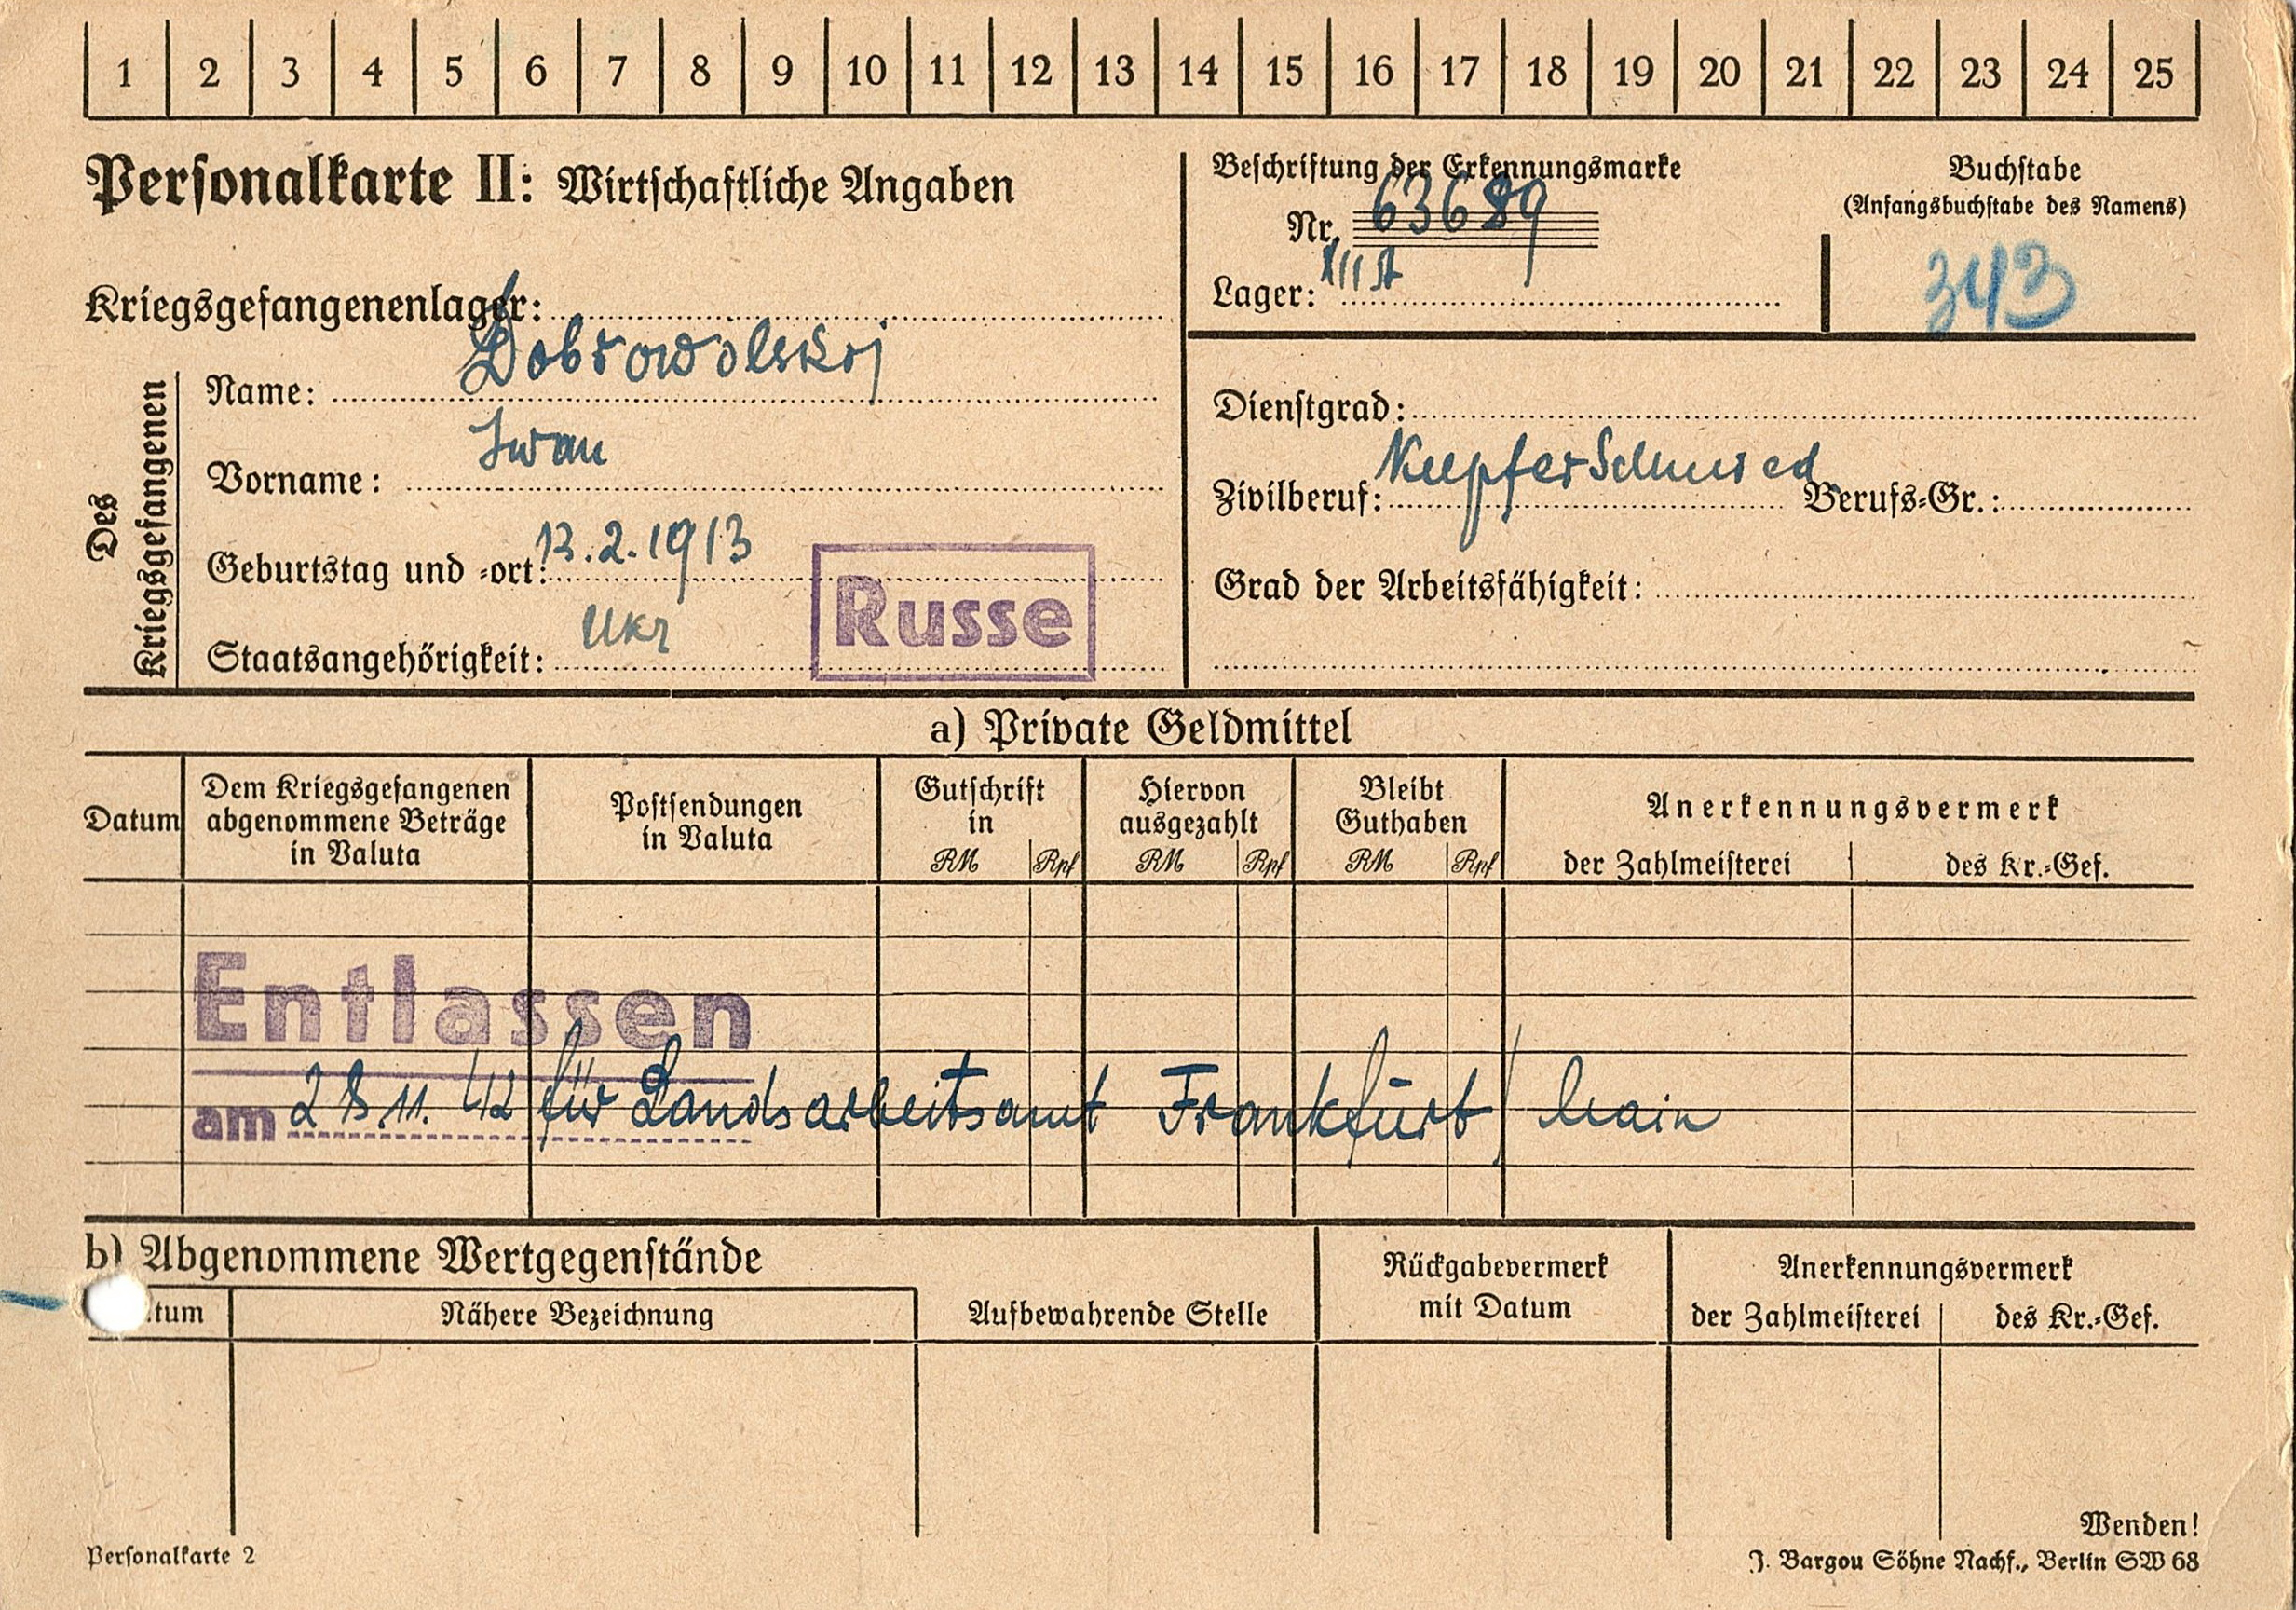 1 2 3 4 5 6 7 8 9 10 11 12 13 14 15 16 17 18 19 20 21 22 23 24 25
Personalkarte II: Wirtschaftliche Angaben
Beschriftung der Erkennungsmarke
Nr. 63689
Lager: XII A
Buchstabe
(Anfangsbuchstabe des Namens)
343
Kriegsgefangenenlager:
Des Kriegsgefangenen
Name: Dobrowolskij
Vorname: Iwan
Geburtstag und -ort: 13.2.1913
Staatsangehörigkeit: Ukr
Russe
Dienstgrad:
Zivilberuf: Kupferschmied Berufs-Gr.:
Grad der Arbeitsfähigkeit:
a) Private Geldmittel
Datum
Dem Kriegsgefangenen
abgenommene Beträge
in Valuta
Postsendungen
in Valuta
Gutschrift
in
RM Rpf
Hiervon
ausgezahlt
RM Rpf
Bleibt
Guthaben
RM Rpf
Anerkennungsvermerk
der Zahlmeisterei des Kr.-Gef.
Entlassen
am 28.11.42 für Landsarbeitsamt Frankfurt/Main
b) Abgenommene Wertgegenstände
tum
Nähere Bezeichnung
Aufbewahrende Stelle
Rückgabevermerk
mit Datum
Anerkennungsvermerk
der Zahlmeisterei des Kr.-Gef.
Wenden!
Personalkarte 2
J. Bargou Söhne Nachf., Berlin SW 68